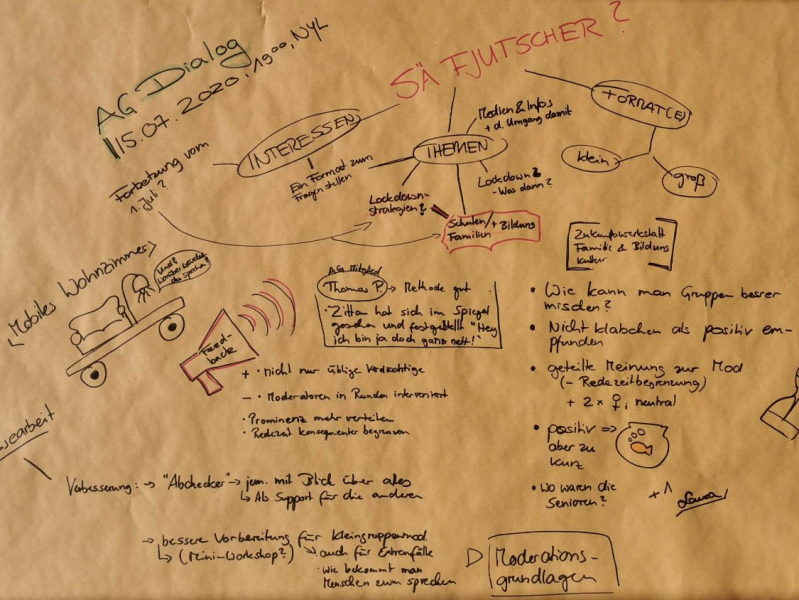 AG Dialog
15.07.2020, 19⁰⁰, NYL
SÄ FJUTSCHER?
Fortsetzung vom
1. Juli?
INTERESSEN
Ein Format zum
Fragen stellen
THEMEN
Medien & Infos
+ d. Umgang damit
Lockdown-
strategien?
Lockdown
- Was dann?
Schulen/ + Bildung
Familien
FORMAT(E)
klein
groß
Zukunftswerkstatt
Familie & Bildungs
kultur
Mobiles Wohnzimmer
Und?
du sprechen?
Feed-
back
AG Mitglied
Thomas P. → Methode gut
· Zittau hat sich im Spiegel
gesehen und festgestellt "Hey
ich bin ja doch ganz nett!"
+ · nicht nur übliche Verdächtige
- · Moderatoren in Runden interveniert
· Prominenz mehr verteilen
· Redezeit konsequenter begrenzen
· Wie kann man Gruppen besser
mischen?
· Nicht klatschen als positiv em-
pfunden
· geteilte Meinung zur Mod
(- Redezeitbegrenzung)
+ 2 x ♀, neutral
· positiv =>
aber zu
kurz
· Wo waren die
Senioren?
+1 Laura
searbeit
Verbesserung: → "Abchecker" → jem. mit Blick über alles
↳ Als Support für die anderen
→ bessere Vorbereitung für Kleingruppenmod.
↳ (Mini-Workshop?) ↘ auch für Extremfälle
· Wie bekommt man
Menschen zum sprechen
▷ Moderations-
grundlagen